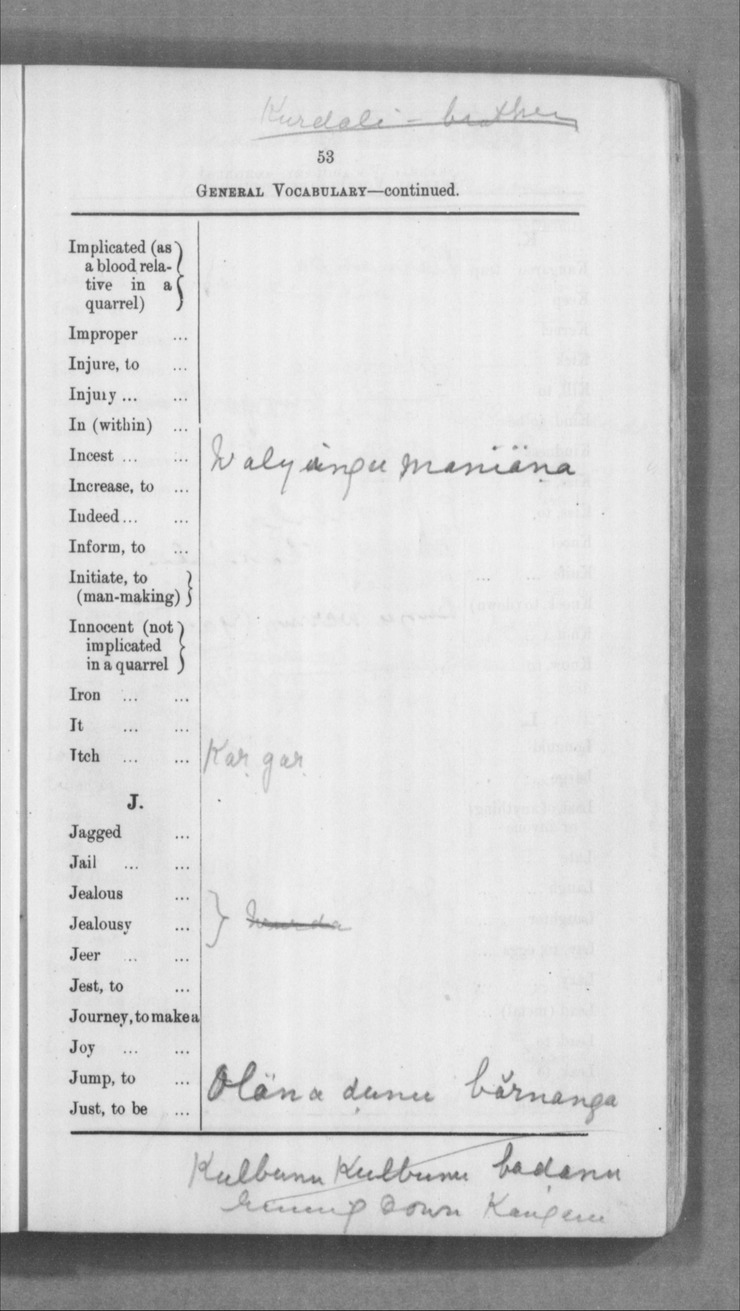 Kurdali - brother
53
GENERAL VOCABULARY—continued.
Implicated (as
a blood rela-
tive in a
quarrel)
Improper ...
Injure, to ...
Injury ... ...
In (within) ...
Incest ... ... Walyingu maniäna
Increase, to ...
Indeed ... ...
Inform, to ...
Initiate, to
(man-making)
Innocent (not
implicated
in a quarrel
Iron ... ...
It ... ...
Itch ... ... Kar gar
J.
Jagged ...
Jail ... ...
Jealous ...
Jealousy ...
Jeer ... ...
Jest, to ...
Journey, to make a
Joy ... ...
Jump, to ... Oläna dunu bărnanga
Just, to be ...
Kulbunu Kulbunu badanu
down